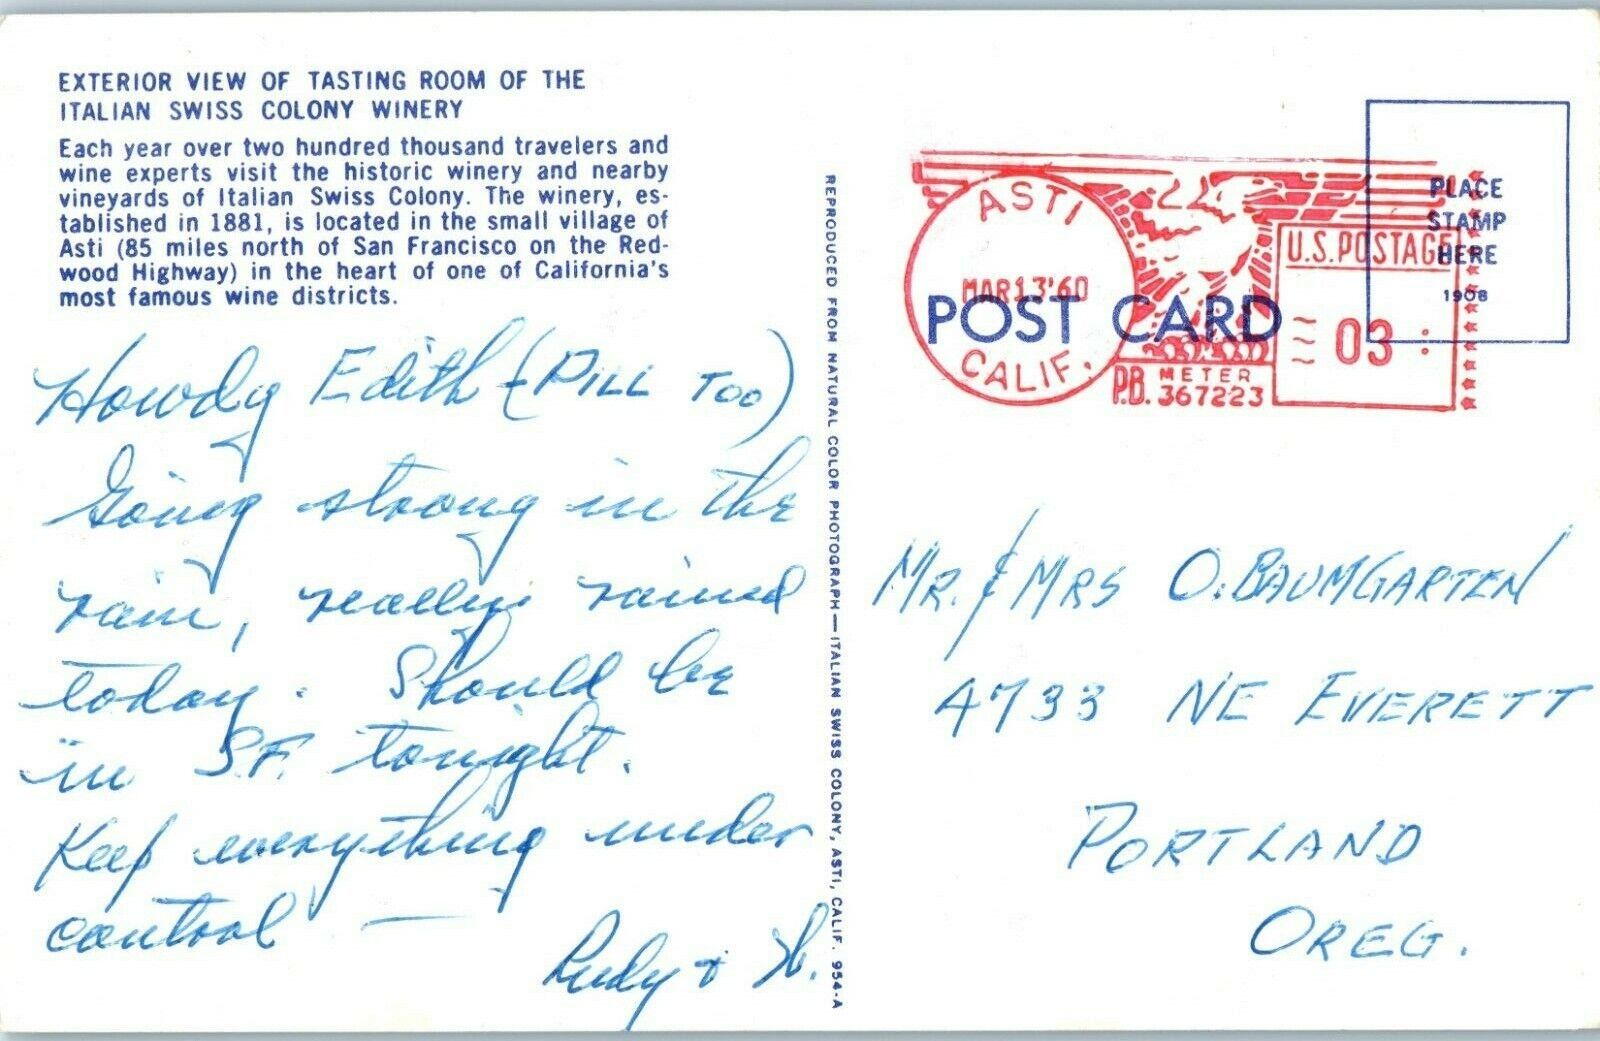 EXTERIOR VIEW OF TASTING ROOM OF THE
ITALIAN SWISS COLONY WINERY
Each year over two hundred thousand travelers and
wine experts visit the historic winery and nearby
vineyards of Italian Swiss Colony. The winery, es-
tablished in 1881, is located in the small village of
Asti (85 miles north of San Francisco on the Red-
wood Highway) in the heart of one of California's
most famous wine districts.
Howdy Edith (PILL TOO)
Going strong in the
rain, really rained
today. Should be
in S.F. tonight.
Keep everything under
control —
Rudy & H.
REPRODUCED FROM NATURAL COLOR PHOTOGRAPH—ITALIAN SWISS COLONY, ASTI, CALIF. 954-A
ASTI
MAR 13 '60
CALIF.
U.S. POSTAGE
03
P.B. METER
367223
PLACE
STAMP
HERE
1908
POST CARD
MR. & MRS O. BAUMGARTEN
4733 NE EVERETT
PORTLAND
OREG.